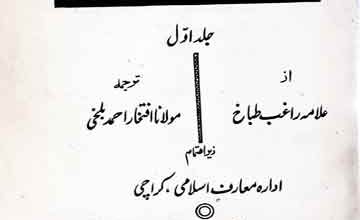 جلد اوّل
از
علامہ راغب طباخ
ترجمہ
مولانا افتخار احمد بلخی
زیر اہتمام
ادارہ معارف اسلامی، کراچی